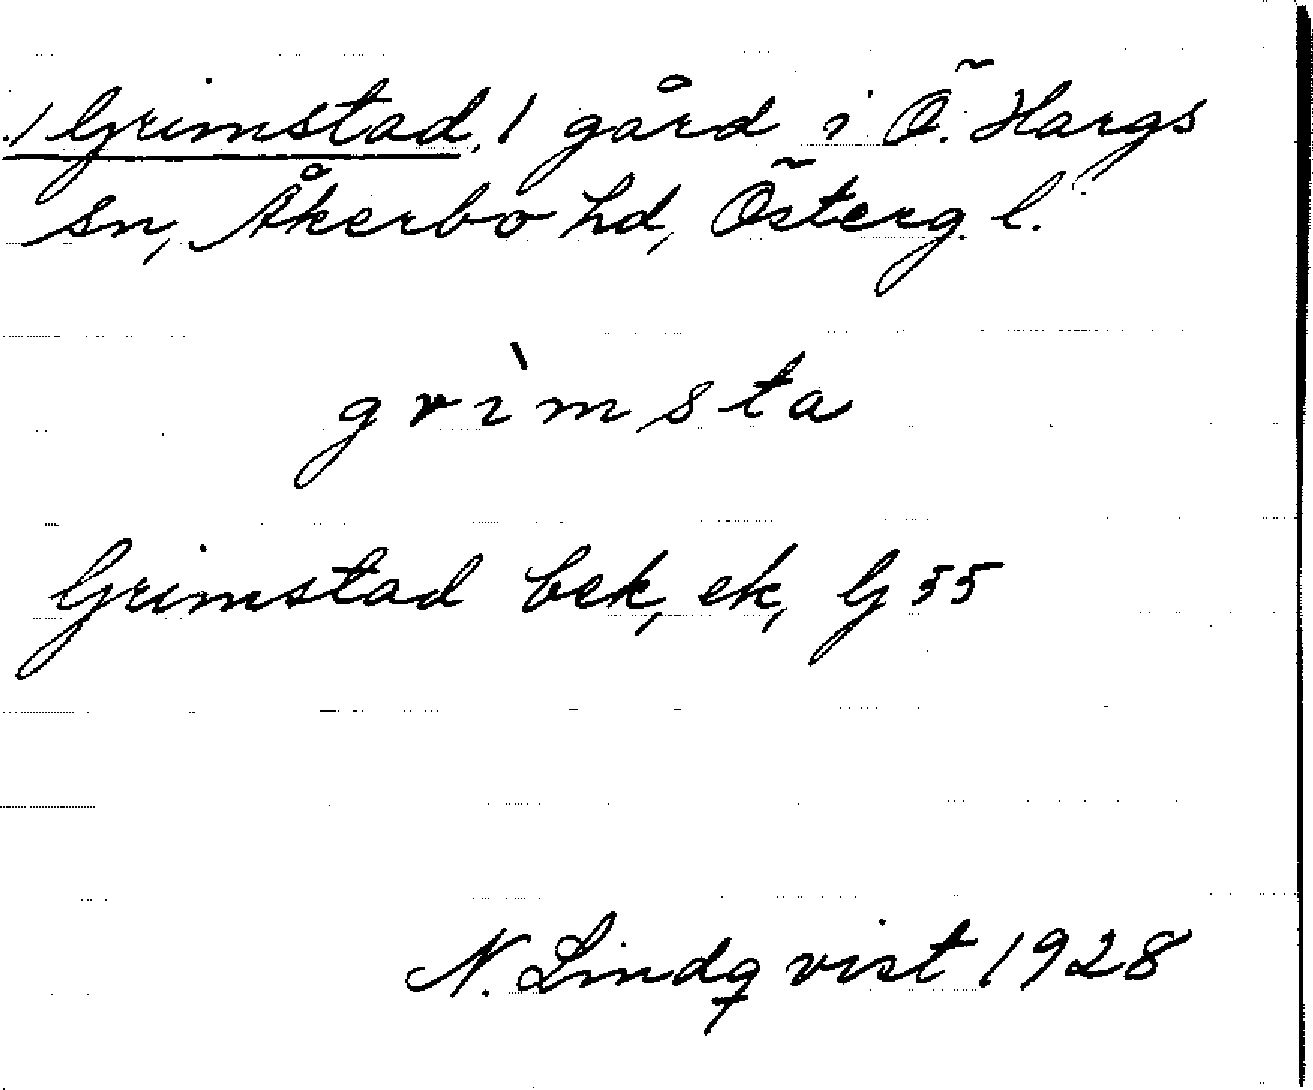 / Grimstad, 1 gård i Ö. Hargs
sn, Åkerbo hd, Österg. l.
grìmsta
Grimstad bek, ek, G 55
N. Lindqvist 1928